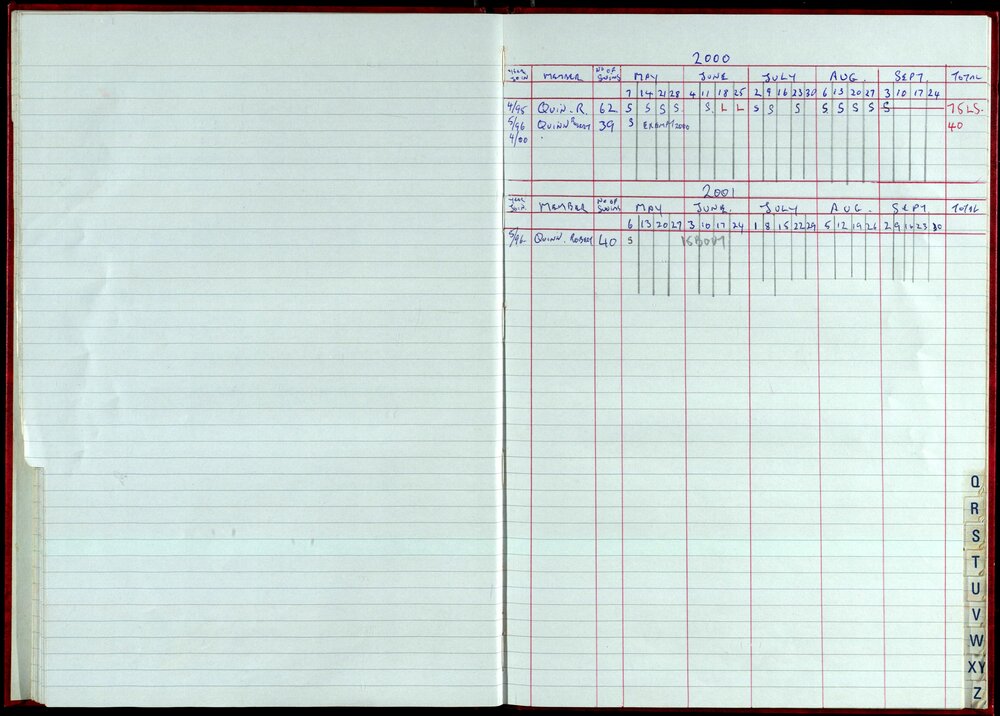 2000
YEAR JOIN MEMBER No OF SWIMS MAY JUNE JULY AUG. SEPT. TOTAL
7 14 21 28 4 11 18 25 2 9 16 23 30 6 13 20 27 3 10 17 24
4/95 QUIN. R. 62 S S S S S L L S S S S S S S S 75 LS.
5/96 QUINN ROBERT 39 S EXEMPT 2000 40
4/00
2001
YEAR JOIN MEMBER No OF SWIMS MAY JUNE. JULY AUG. SEPT TOTAL
6 13 20 27 3 10 17 24 1 8 15 22 29 5 12 19 26 2 9 16 23 30
5/96 QUINN. ROBERT 40 S
Q
R
S
T
U
V
W
XY
Z